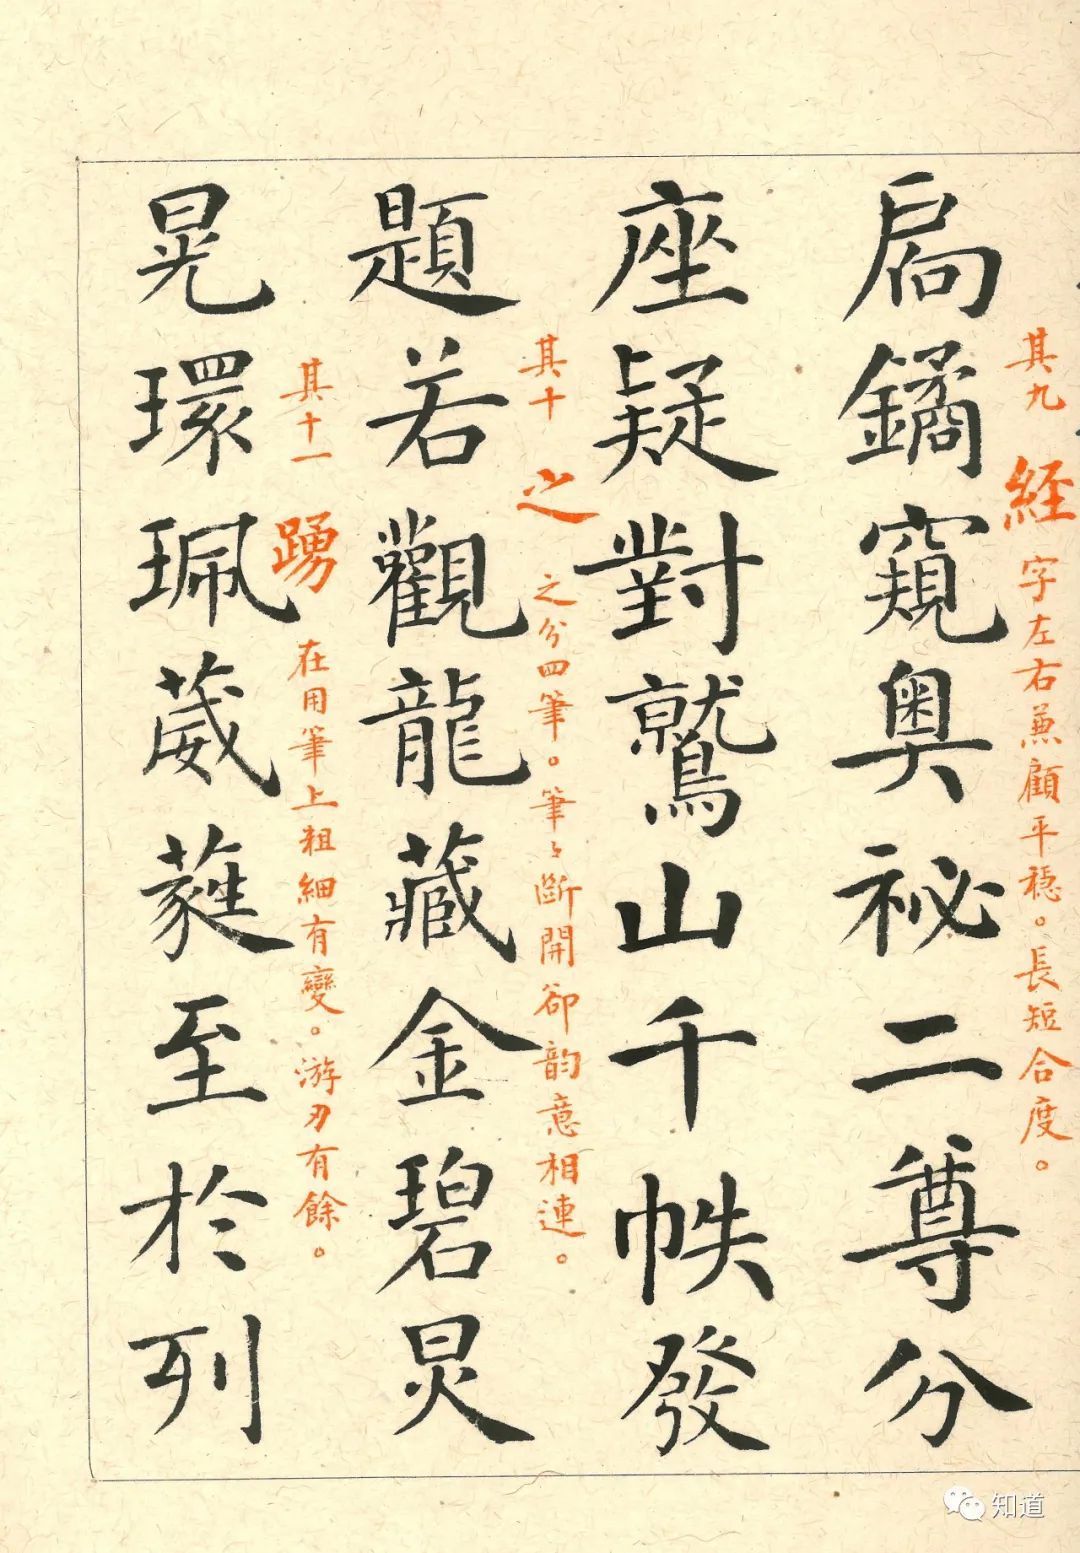 扃鐍窺奧祕二尊分
座疑對鷲山千帙發
題若觀龍藏金碧炅
晃環珮葳蕤至於列
其九 経 字左右兼顧平穩。長短合度。
其十 之 之分四筆。筆〻斷開卻韵意相連。
其十一 踴 在用筆上粗細有變。游刃有餘。
知道